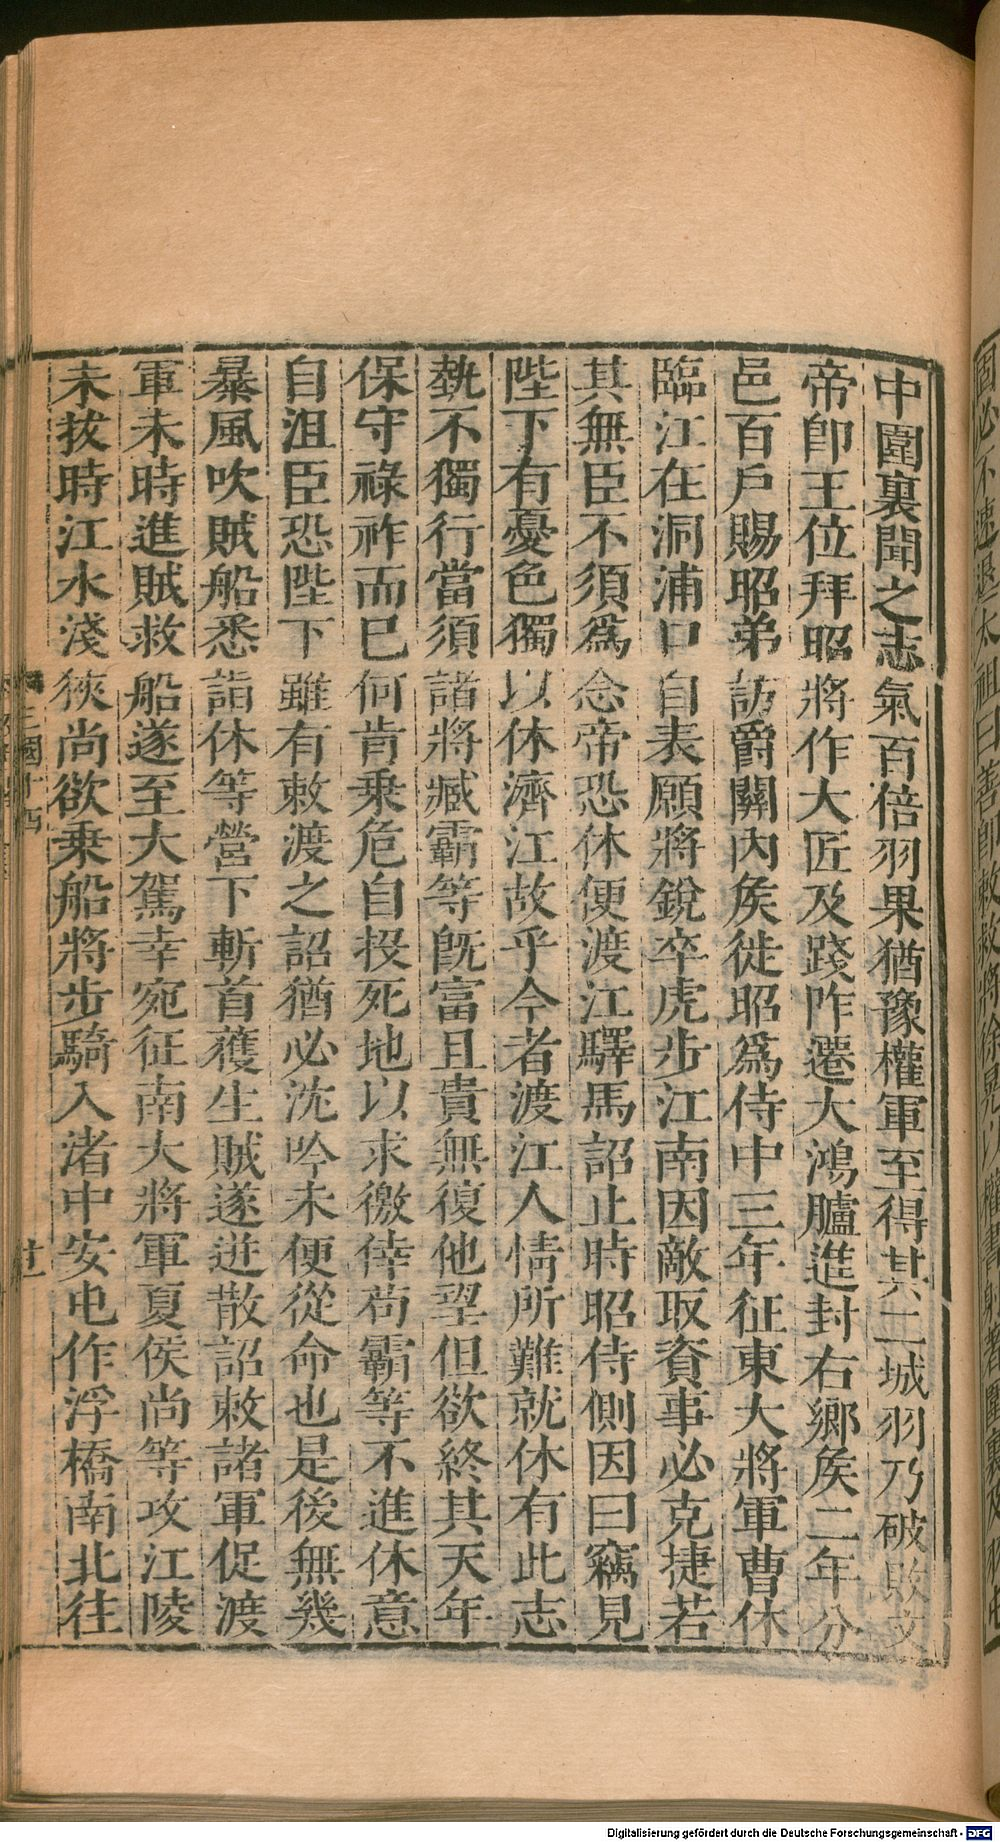 中圍裏聞之志氣百倍羽果猶豫權軍至得其二城羽乃破敗文
帝卽王位拜昭將作大匠及踐阼遷大鴻臚進封右鄉侯二年分
邑百戶賜昭弟訪爵關內侯徙昭爲侍中三年征東大將軍曹休
臨江在洞浦口自表願將銳卒虎步江南因敵取資事必克捷若
其無臣不須爲念帝恐休便渡江驛馬詔止時昭侍側因曰竊見
陛下有憂色獨以休濟江故乎今者渡江人情所難就休有此志
埶不獨行當須諸將臧霸等旣富且貴無復他望但欲終其天年
保守祿祚而已何肯乗危自投死地以求徼倖苟霸等不進休意
自沮臣恐陛下雖有敕渡之詔猶必沈吟未便從命也是後無幾
暴風吹賊船悉詣休等營下斬首獲生賊遂迸散詔敕諸軍促渡
軍未時進賊救船遂至大駕幸宛征南大將軍夏侯尚等攻江陵
未拔時江水淺狹尚欲乗船將步騎入渚中安屯作浮橋南北往
三國十四
廿一
Digitalisierung gefördert durch die Deutsche Forschungsgemeinschaft - DFG